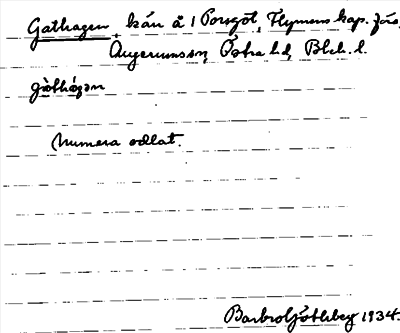 Gathagen, kån å 1 Porsgöl, Flymens kap. förs.
Augerums sn, Östra hd, Blek. l.
Numera odlat.
Barbro Götlberg 1934.